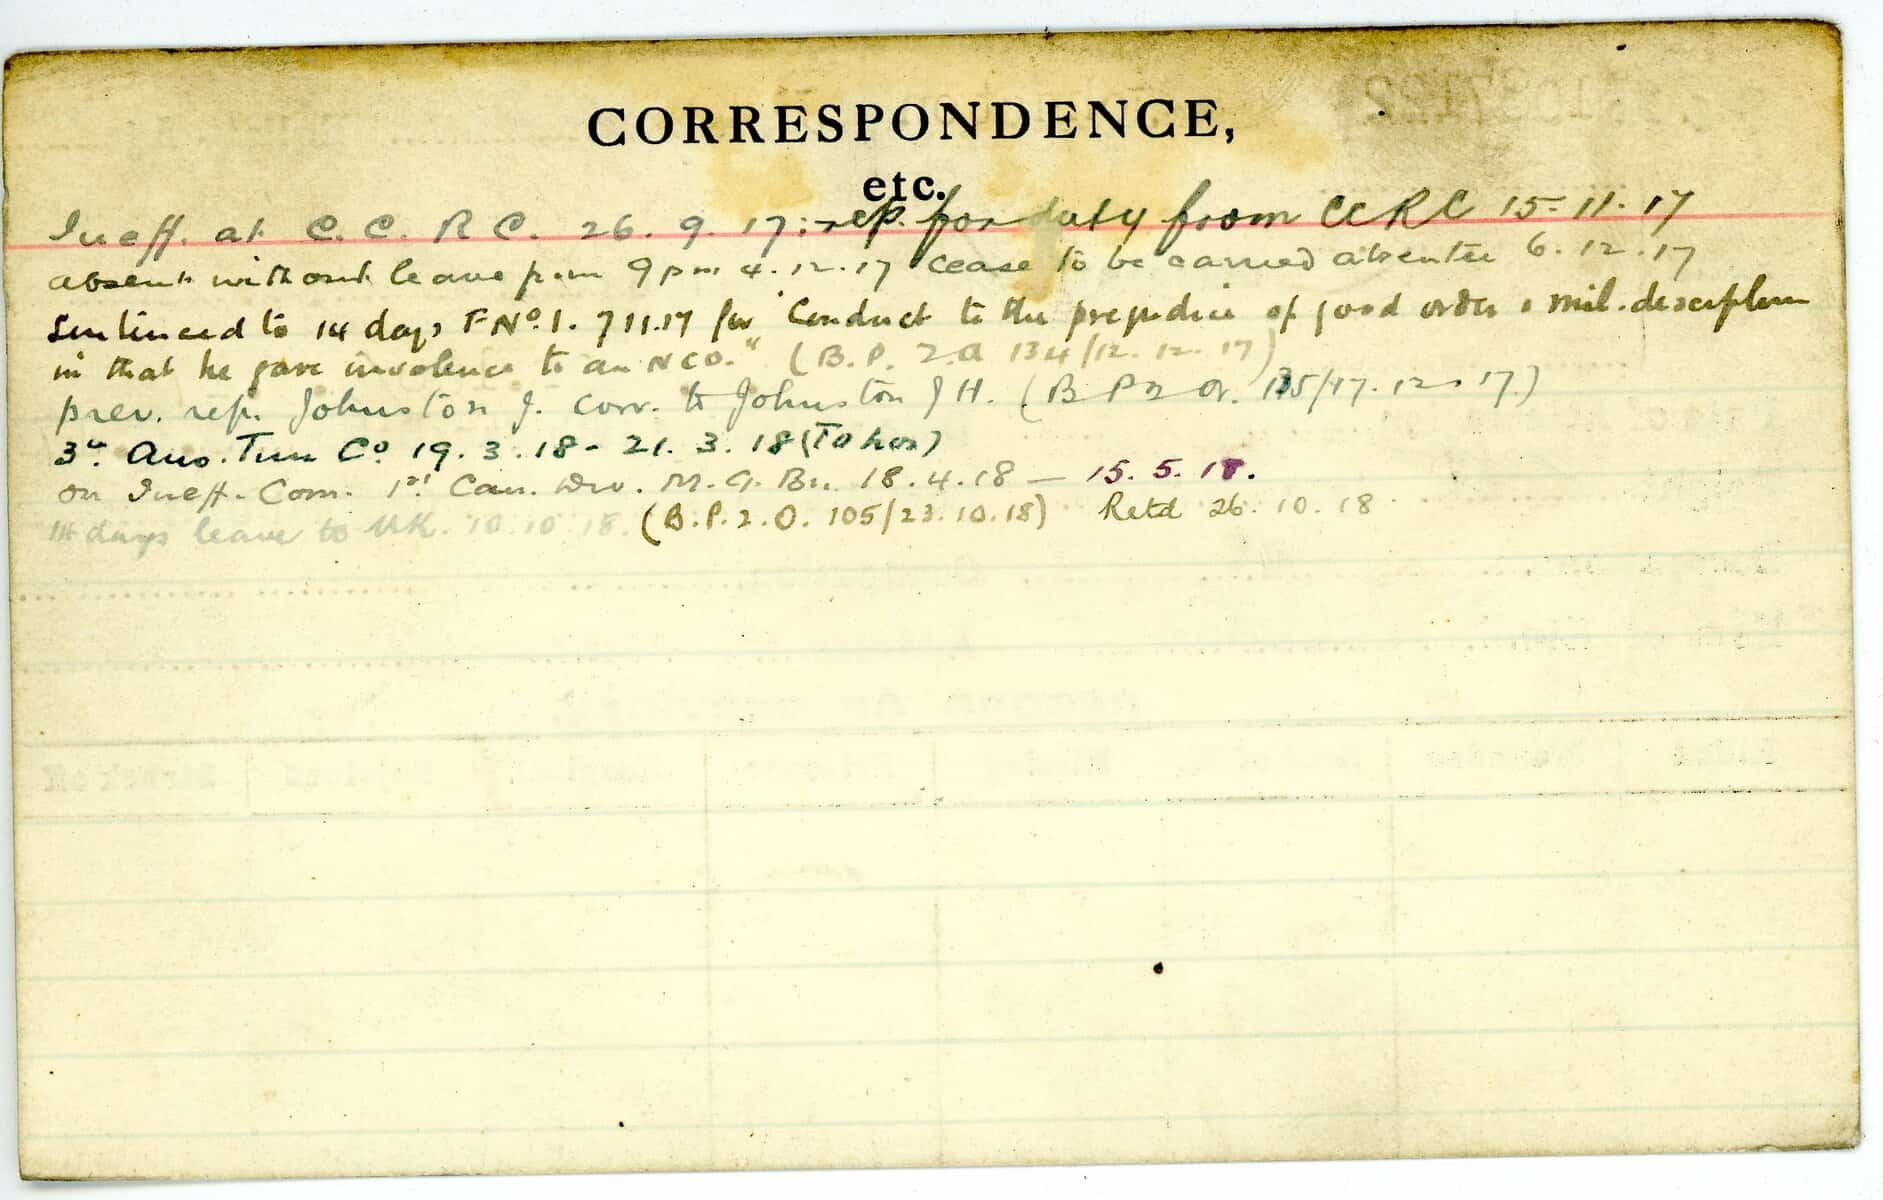 CORRESPONDENCE,
etc.
Ineff. at C.C.R.C. 26.9.17; rep. for duty from CCRC 15-11-17
absent without leave from 9pm 4.12.17 cease to be carried absentee 6.12.17
Sentenced to 14 days F.No.1. 7 11.17 for "Conduct to the prejudice of good order & mil. descipline
in that he gave insolence to an NCO." (B.P. 2.O 134/12.12.17)
prev. rep. Johnston J. corr. to Johnston J H. (B P 2 O. 135/17.12.17.)
3rd Aus. Tun Co 19.3.18 - 21.3.18 (To hos)
on Ineff. Com. 1st Can. Div. M.G. Bn. 18.4.18 — 15.5.18.
14 days leave to UK. 10.10.18. (B.P.2.O. 105/23.10.18) Retd 26.10.18